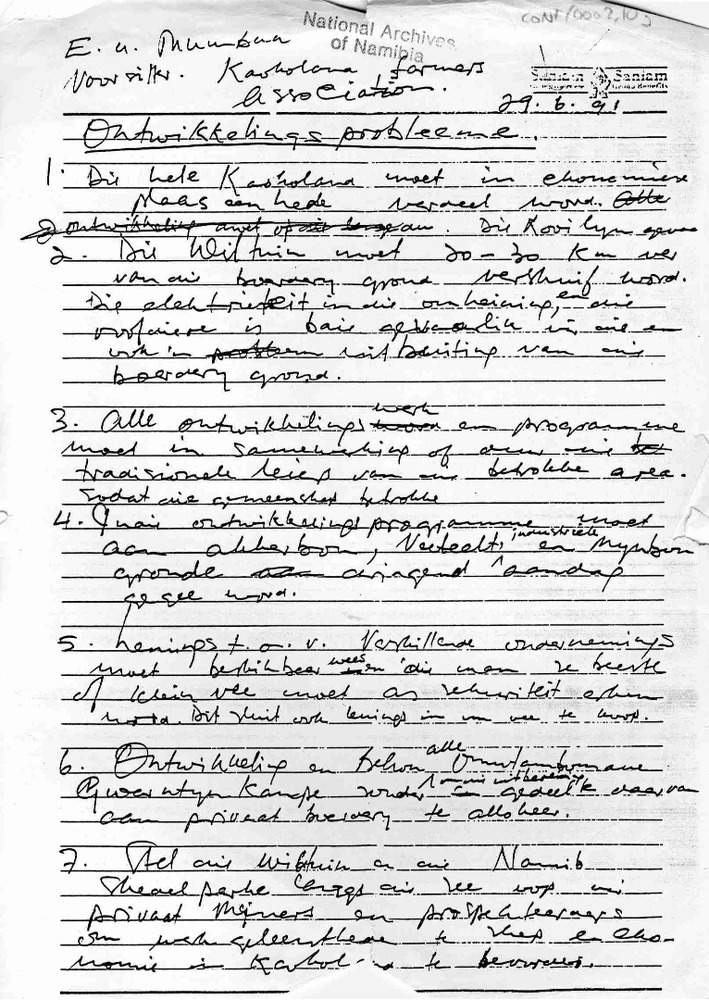 CONT/0002,10
National Archives
of Namibia
E. u.
Voorsitter. Kaokoland Farmers
Association.
Sanlam Sanlam
29.6.91
Ontwikkelingsprobleeme.
1. Die hele Kaokoland moet in ekonomiese
Plaas eenhede verdeel word. Alle
ontwikkeling moet op. Die Rooi lyn
2. Die Wiltuin moet 20-30 Km ver
van die boerdery grond verskuif word.
Die elektrisiteit in die omheining, en die
is baie gevaarlik in die en
ook 'n probleem uitbuiting van die
boerdery grond.
3. Alle ontwikkelings werk en programme
moet in samewerking of deur die
tradisionele leiers van die betrokke area.
Sodat die gemeenskap betrokke
4. ontwikkelingsprogramme moet
aan akkerbou, Veeteelt, industriële en Mynbou
gronde dringend aandag
gegee word.
5. Lenings t.o.v. Verskillende ondernemings
moet beskikbaar wees en die man se beeste
of klein vee moet as sekuriteit erken
word. Dit sluit ook lenings in om vee te koop.
6. Ontwikkeling en behou alle Omutambomawe
Qwarantyn Kampe sonder 'n gedeelte daarvan
aan privaat boerdery te allokeer.
7. Stel die wiltuin en die Namib
Skeleel parke langs die see oop vir
privaat Myners en prospekteerders
om werk geleenthede te skep en eko-
nomie in Kaokoland te bevorder.